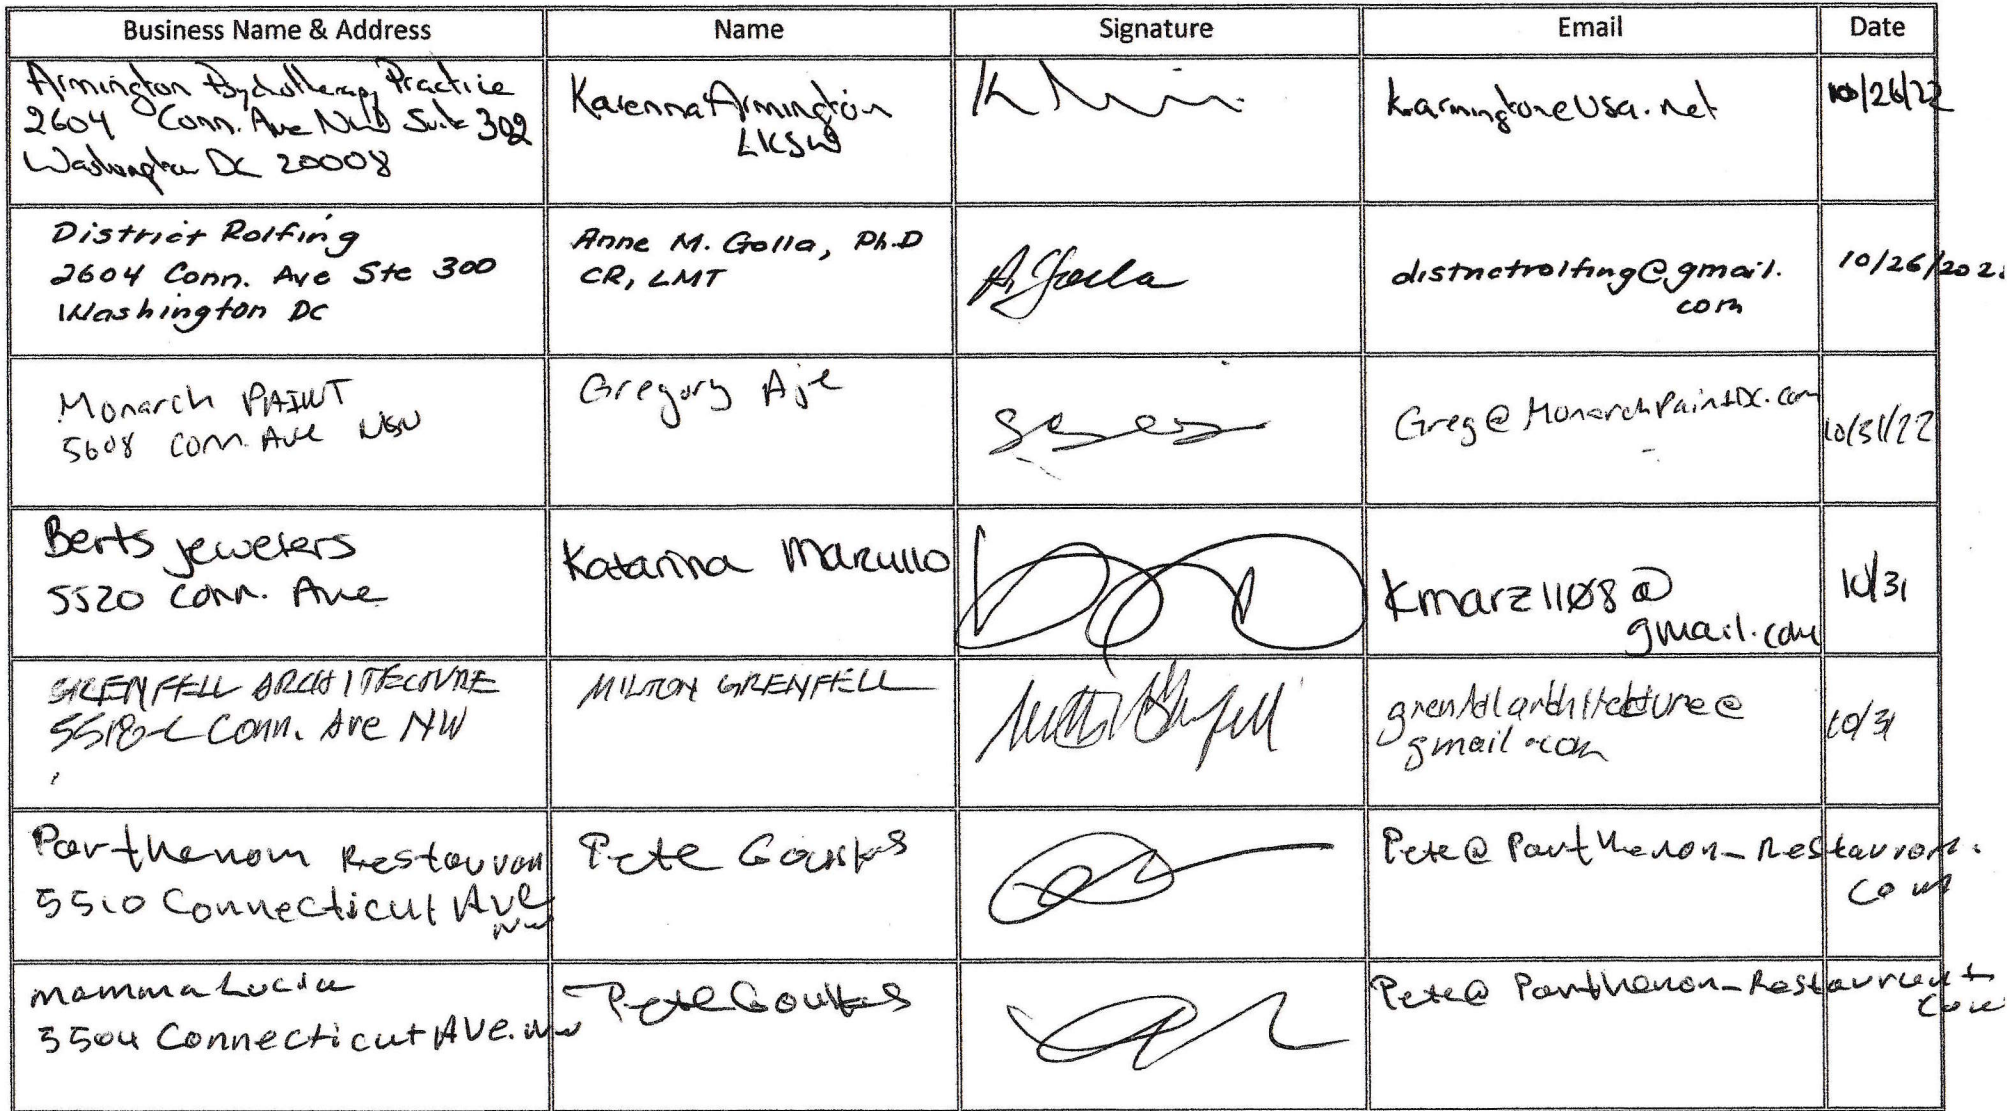 Business Name & Address Name Signature Email Date
Armington Psychotherapy Practice
2604 Conn. Ave NW Suite 302
Washington DC 20008
Karenna Armington
karmington@usa.net
10/26/22
District Rolfing
2604 Conn. Ave Ste 300
Washington DC
Anne M. Golla, Ph.D
CR, LMT
A. Golla
districtrolfing@gmail.
com
10/26/202
Monarch PAINT
5608 Conn. Ave NW
Gregory Aje
Greg@MonarchPaintDC.com
10/31/22
Berts jewelers
5520 Conn. Ave
Katarina Marzullo
Kmarz1108@
gmail.com
10/31
GRENFELL ARCHITECTURE
5518-C Conn. Ave NW
MILTON GRENFELL
grenfellarchitecture@
gmail.com
10/31
Parthenon Restauran
5510 Connecticut Ave
NW
Pete
Pete@Parthenon-Restauran.
com
mamma Lucia
5504 Connecticut AVE. NW
Pete
Pete@Parthenon-Restaurant
com